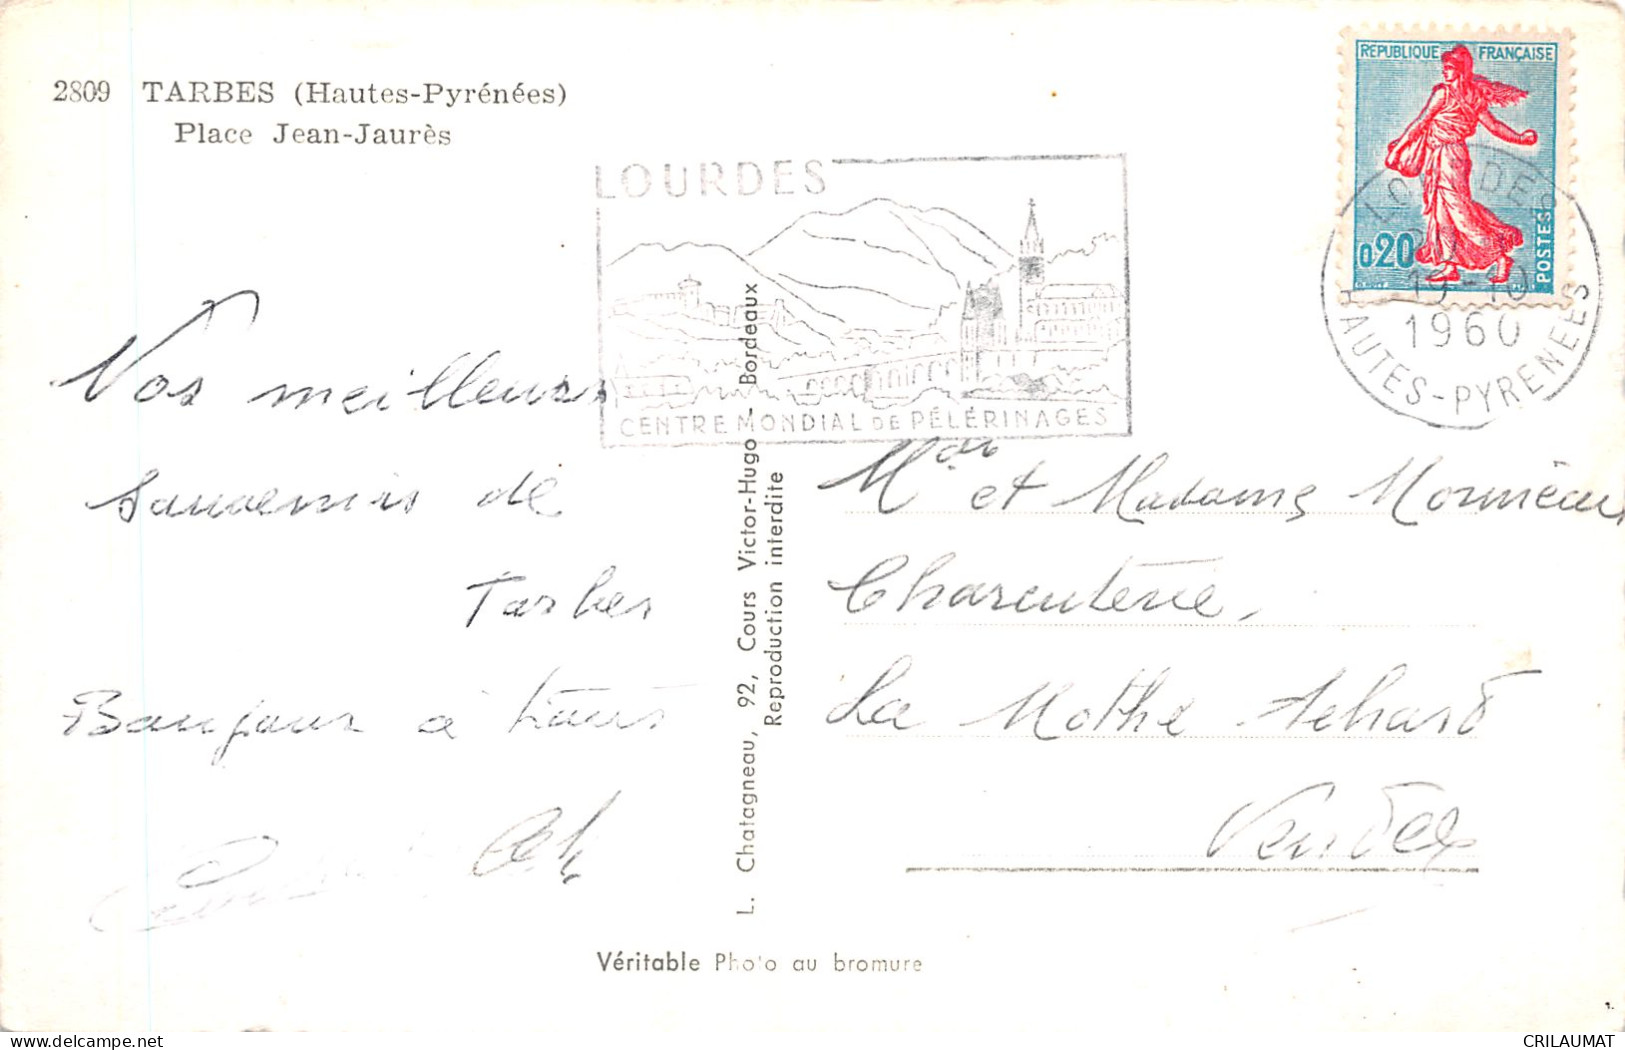 2809 TARBES (Hautes-Pyrénées)
Place Jean-Jaurès
RÉPUBLIQUE FRANÇAISE
0,20
POSTES
LOURDES
19-10
1960
HAUTES-PYRENEES
LOURDES
CENTRE MONDIAL DE PÉLÉRINAGES
Nos meilleurs
souvenirs de
Tarbes
Bonjour à tous
L. Chatagneau, 92, Cours Victor-Hugo - Bordeaux
Reproduction interdite
et Madame
Charcuterie,
La Mothe Achard
Vendée
Véritable Photo au bromure
delcampe.net
CRILAUMAT